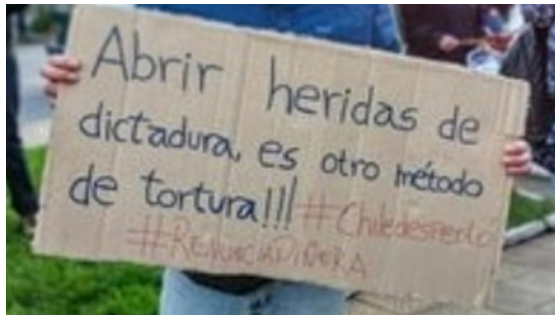 Abrir heridas de
dictadura, es otro método
de tortura!!! #Chiledesperto
#RENUNCIAPIÑERA